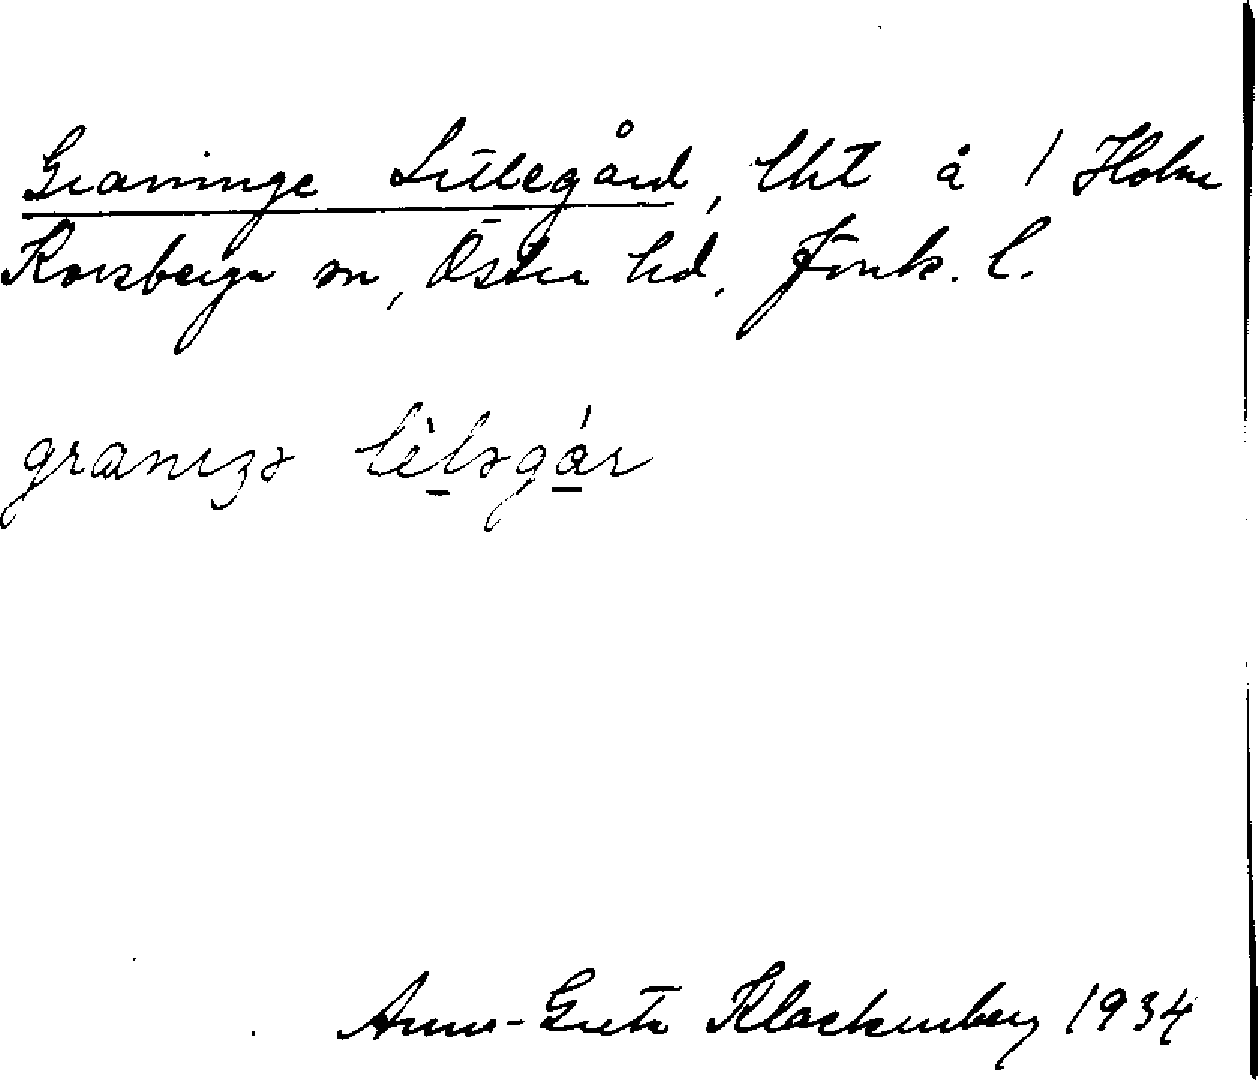 Graninge Lillegård, lht å 1 Holm
Korsberga sn, Östra hd, Jönk. l.
granɩŋə lìləgár
Anna-Greta Klackenberg 1934